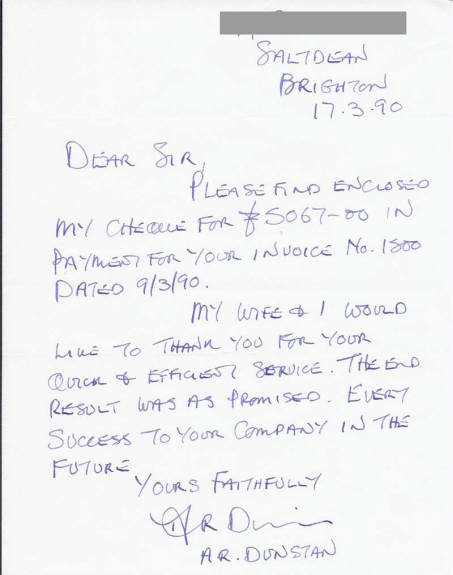 SALTDEAN
BRIGHTON
17.3.90
DEAR SIR,
PLEASE FIND ENCLOSED
MY CHEQUE FOR £5067-00 IN
PAYMENT FOR YOUR INVOICE No. 1500
DATED 9/3/90.
MY WIFE & I WOULD
LIKE TO THANK YOU FOR YOUR
QUICK & EFFICIENT SERVICE. THE END
RESULT WAS AS PROMISED. EVERY
SUCCESS TO YOUR COMPANY IN THE
FUTURE
YOURS FAITHFULLY
A.R. DUNSTAN